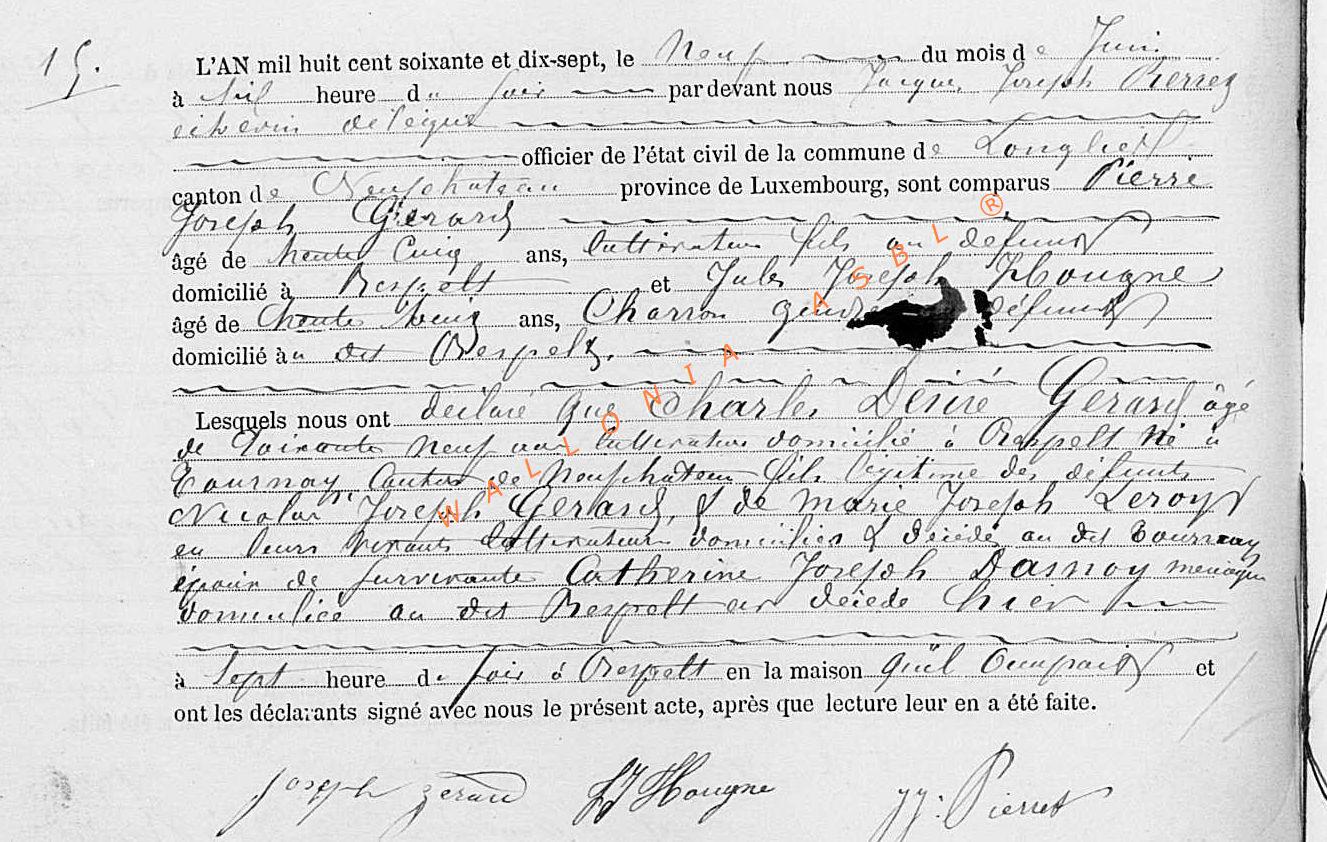 15.
L'AN mil huit cent soixante et dix-sept, le Neuf du mois de Juin
à heure du soir par devant nous Jacques Joseph Pierret
échevin délégué
officier de l'état civil de la commune de Longlier
canton de Neufchateau province de Luxembourg, sont comparus Pierre
Joseph Gérard
âgé de trente Cinq ans, cultivateur fils au defunt
domicilié à Respelt et Jules Joseph Hougne
âgé de trente ans, Charron gendre défunt
domicilié au dit Respelt.
Lesquels nous ont déclaré que Charles Désiré Gerard âgé
de Soixante neuf ans cultivateur domicilié à Respelt né à
Tournay, Canton de Neufchateau fils légitime des défunts
Nicolas Joseph Gerard, & de Marie Joseph Leroy
en leurs vivants cultivateurs domiciliés & décédés au dit Tournay
époux de survivante Catherine Joseph Dasnoy menagère
domiciliée au dit Respelt est décédé hier
à Sept heure du soir à Respelt en la maison qu'il occupait et
ont les déclarants signé avec nous le présent acte, après que lecture leur en a été faite.
Joseph gerard JJ Hougne JJ. Pierret
WALLONIA ASBL ®